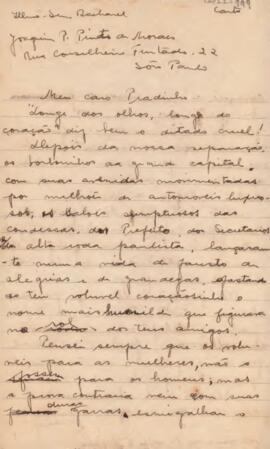 Illmo. Snr. Bacharel
Carta
Joaquim P. Pinto de Moraes
Rua Conselheiro Furtado, 22
São Paulo
Meu caro Pradinho
"Longe dos olhos, longe do
coração" diz bem o ditado cruel!
Depois da nossa separação,
os borborinhos da grande capital,
com suas avenidas movimentadas
por milhões de automoveis luxuo-
sos, os bailes sumptuosos das
condessas, do Prefeito, dos Secretarios
da alta roda paulista, lançaram-
te numa vida de fausto de
alegrias e de grandezas, afastando
do teu voluvel coraçãosinho o
nome mais humilde que figurava
no rol dos teus amigos.
Pensei sempre que os volu-
veis para as mulheres, não o
fossem para os homens; mas
a prova contraria vem com suas
duras garras, esmigalhar o